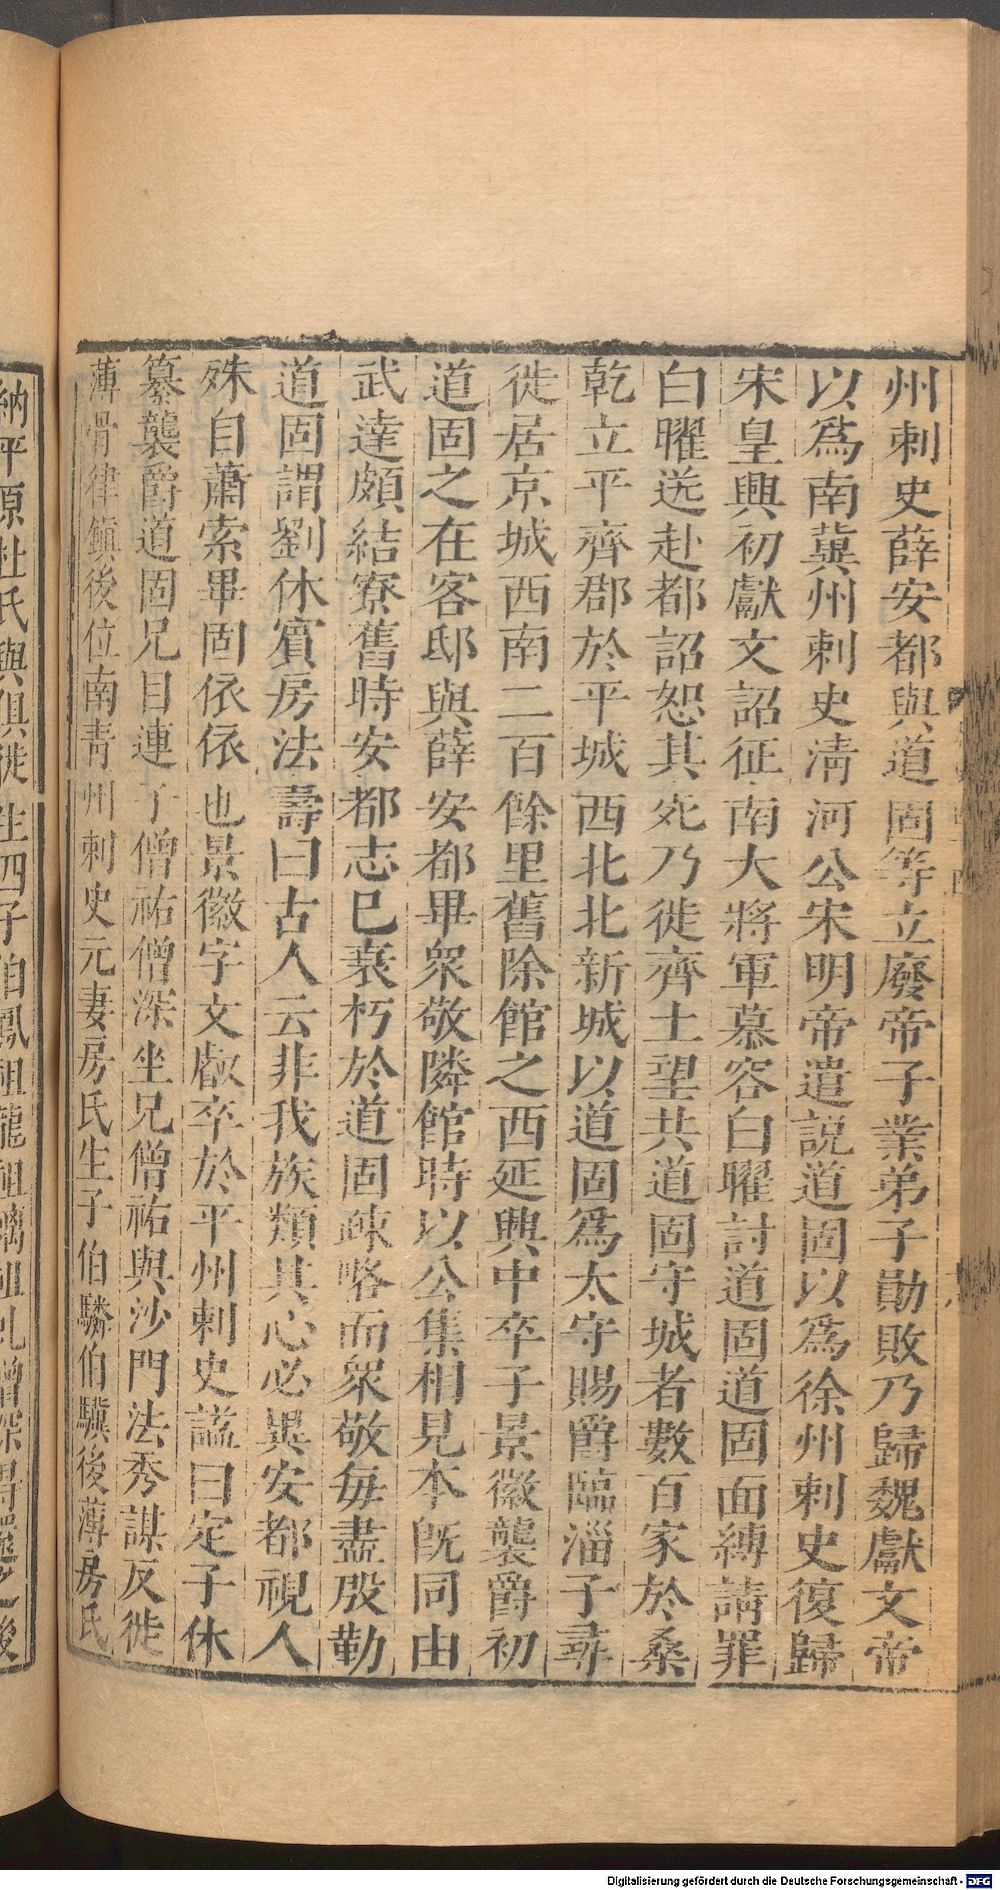 州刺史薛安都與道固等立廢帝子業弟子勛敗乃歸魏獻文帝
以爲南冀州刺史淸河公宋明帝遣說道固以爲徐州刺史復歸
宋皇興初獻文詔征南大將軍慕容白曜討道固道固面縛請罪
白曜送赴都詔恕其死乃徙齊土望共道固守城者數百家於桑
乾立平齊郡於平城西北北新城以道固爲太守賜爵臨淄子尋
徙居京城西南二百餘里舊除館之西延興中卒子景徽襲爵初
道固之在客邸與薛安都畢衆敬隣館時以公集相見本旣同由
武達頗結寮舊時安都志已衰朽於道固踈略而衆敬每盡殷勤
道固謂劉休賓房法壽曰古人云非我族類其心必異安都視人
殊自蕭索畢固依依也景徽字文叡卒於平州刺史謚曰定子休
纂襲爵道固兄目連子僧祐僧深坐兄僧祐與沙門法秀謀反徙
薄骨律鎭後位南靑州刺史元妻房氏生子伯驎伯驥後薄房氏
納平原杜氏與俱徙生四子伯鳳祖龍祖螭祖虬僧深得還之後
Digitalisierung gefördert durch die Deutsche Forschungsgemeinschaft - DFG